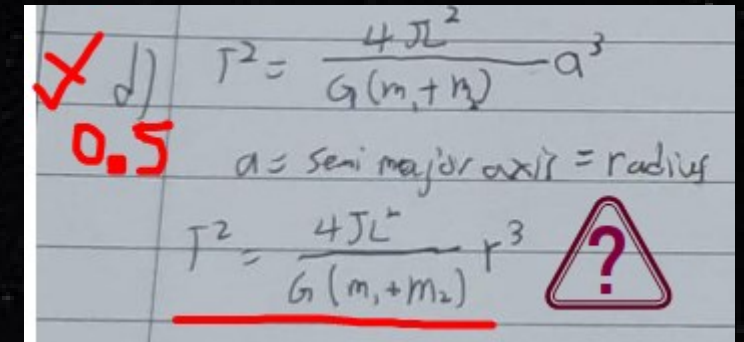 d) T² = 4π² / G(m₁+m₂) a³
0.5
a = semi major axis = radius
T² = 4π² / G(m₁+m₂) r³
?